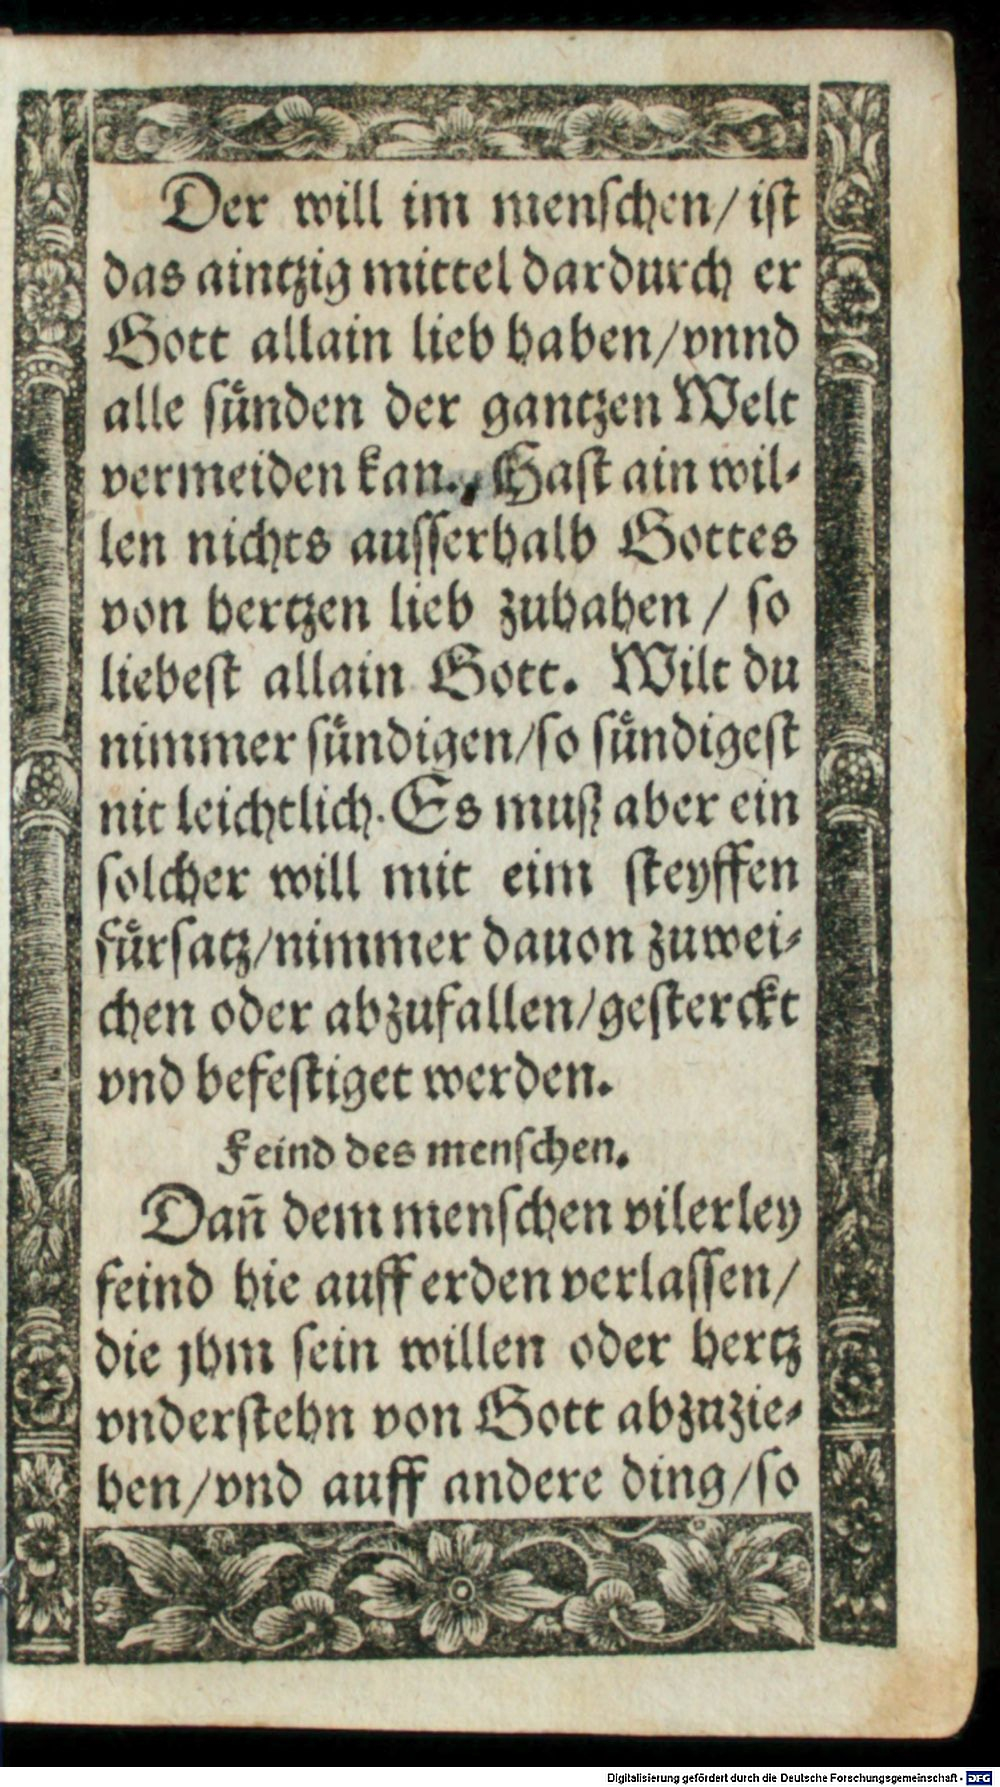 Der will im menschen/ ist
das aintzig mittel dardurch er
Gott allain lieb haben/vnnd
alle sünden der gantzen Welt
vermeiden kan. Hast ain wil-
len nichts ausserhalb Gottes
von hertzen lieb zuhaben / so
liebest allain Gott. Wilt du
nimmer sündigen/so sündigest
nit leichtlich. Es muß aber ein
solcher will mit eim steyffen
fürsatz/nimmer dauon zuwei-
chen oder abzufallen/gesterckt
vnd befestiget werden.
Feind des menschen.
Dañ dem menschen vilerley
feind hie auff erden verlassen/
die jhm sein willen oder hertz
vnderstehn von Gott abzuzie-
hen/vnd auff andere ding/so
Digitalisierung gefördert durch die Deutsche Forschungsgemeinschaft - DFG